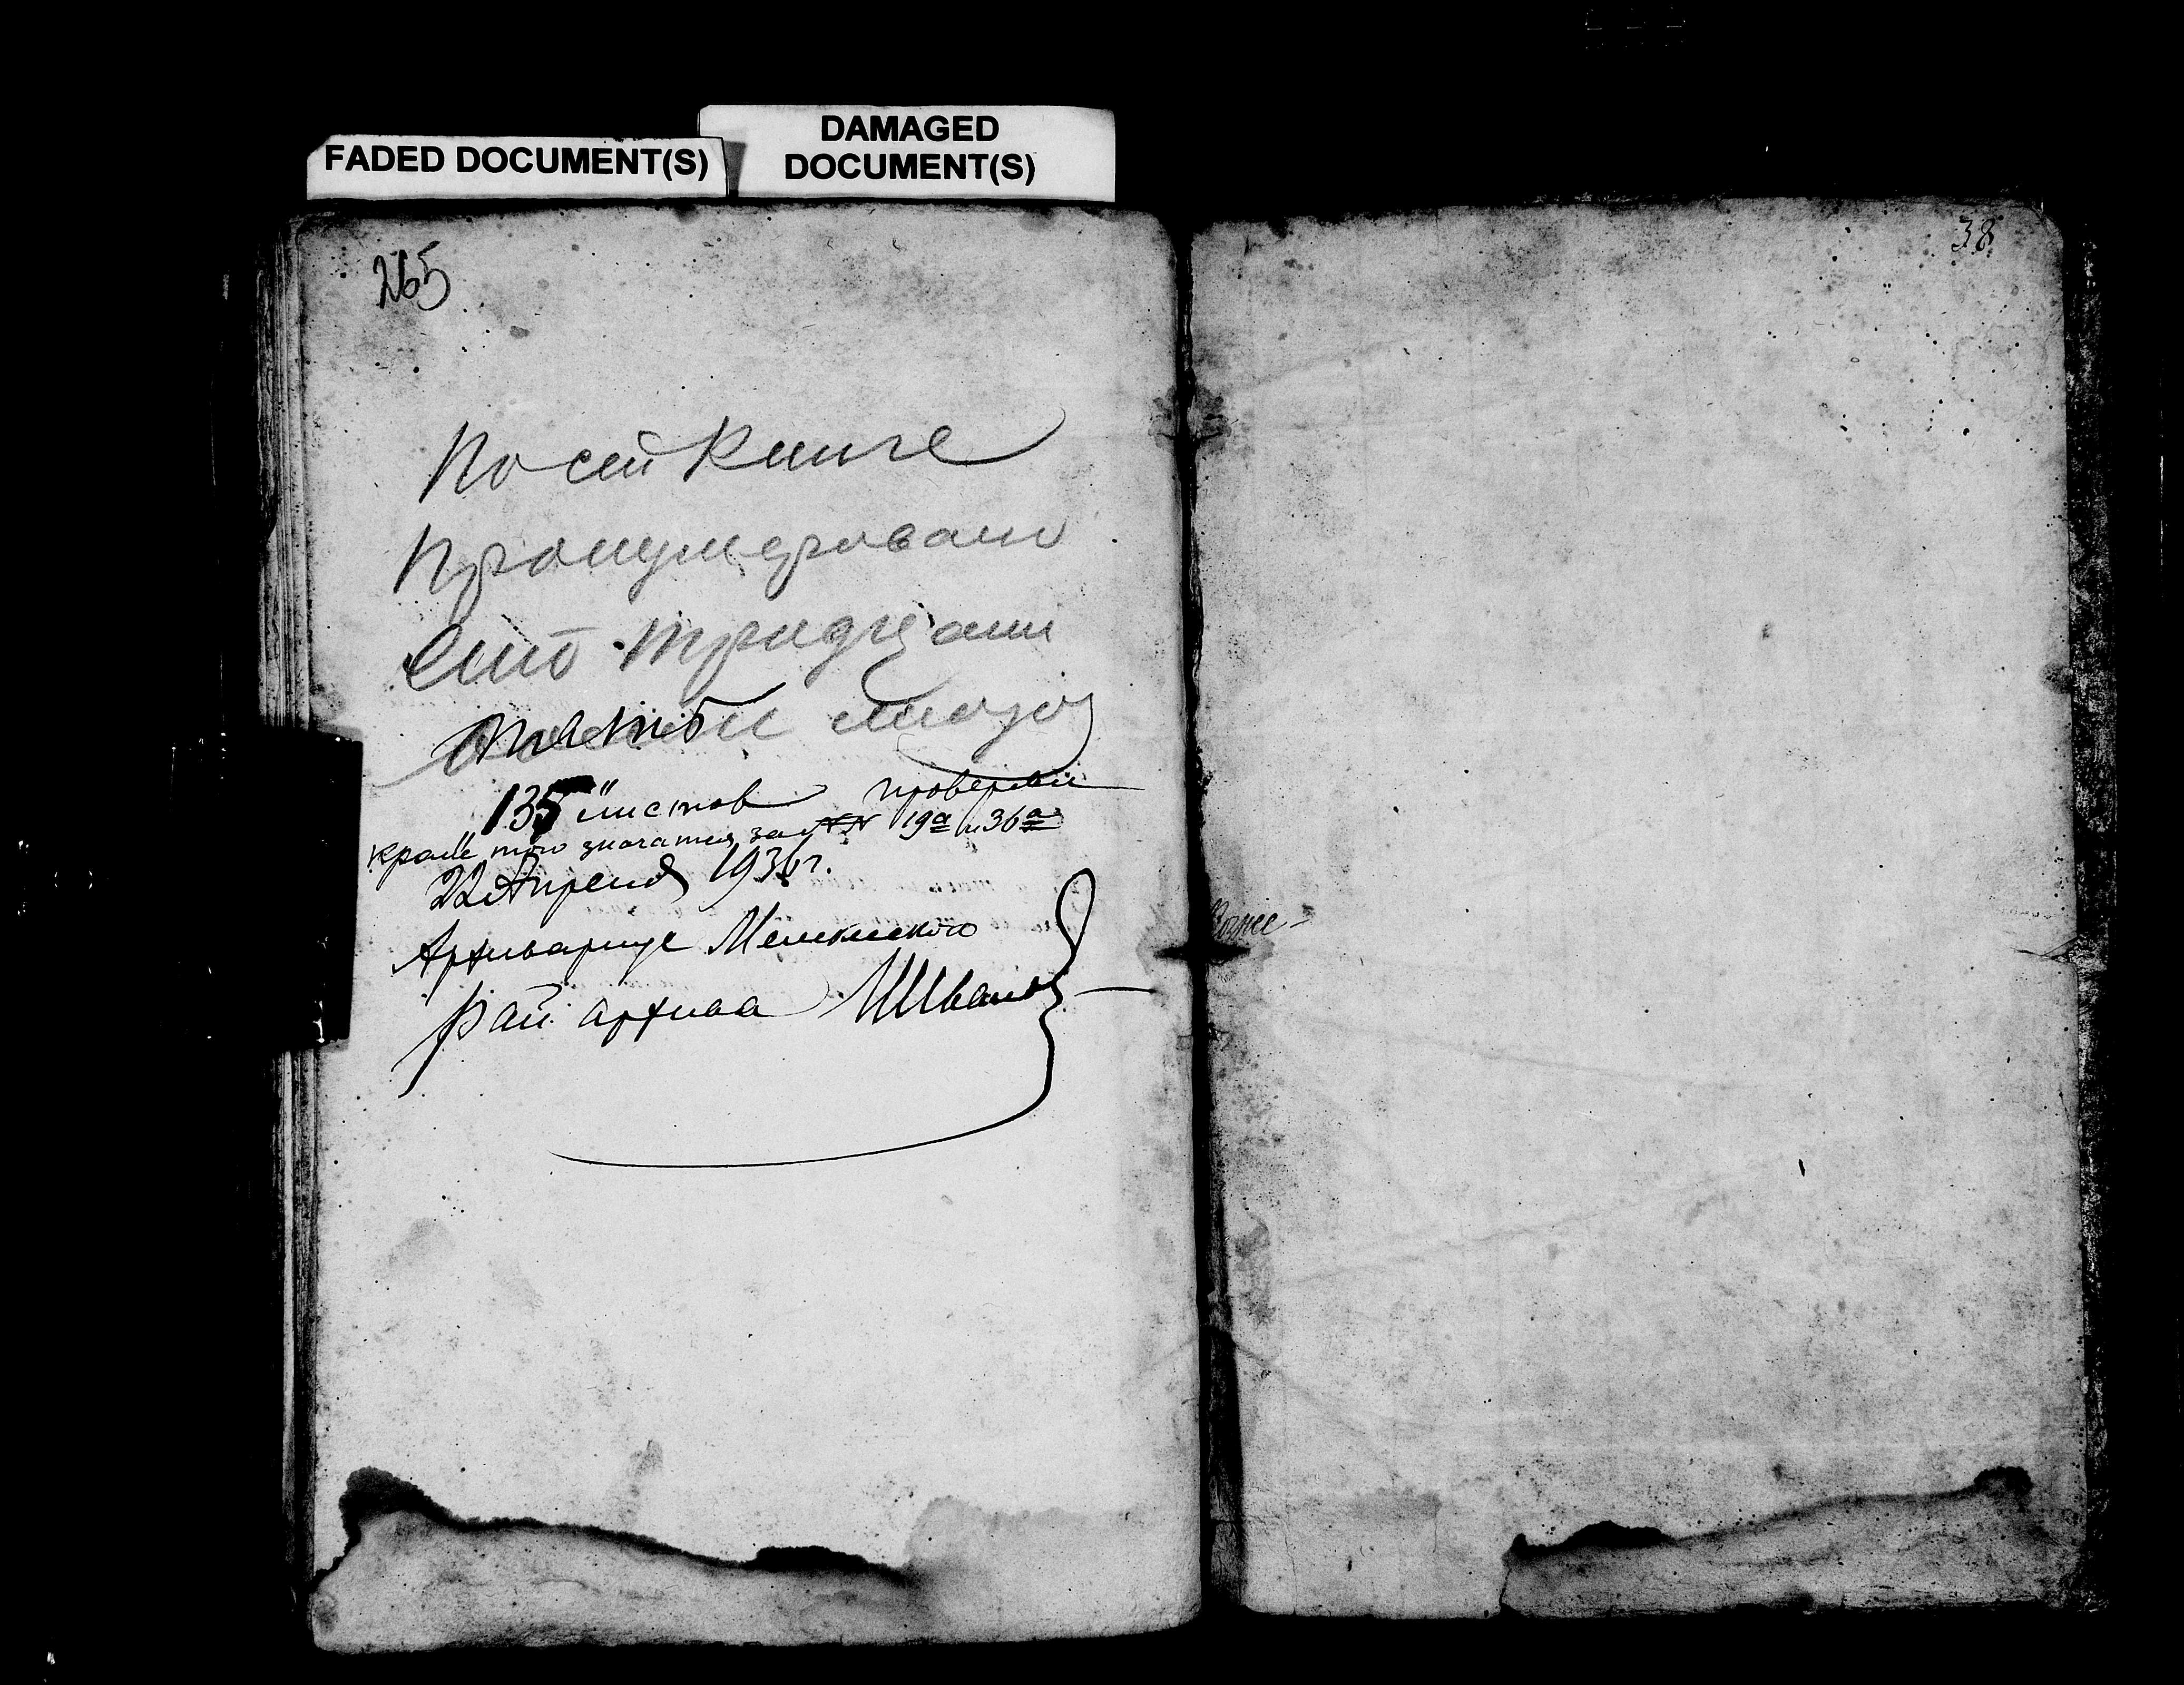 FADED DOCUMENT(S)
DAMAGED
DOCUMENT(S)
265
По сей книге
пронумеровано
сто тридцать
пять листов
135 листов проверил
кроме того значатся за №№ 19а и 36а
22 Апреля 1936 г.
Архивариус Меленского
Рай архива ИИванов
38